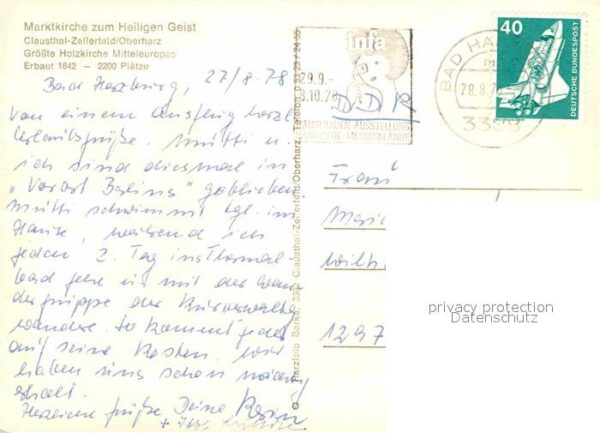 Marktkirche zum Heiligen Geist
Clausthal-Zellerfeld/Oberharz
Größte Holzkirche Mitteleuropas
Erbaut 1642 — 2200 Plätze
Bad Harzburg, 27/8.78
Von einem Ausflug herzl.
Urlaubsgrüße. Mutti u.
ich sind diesmal in
"Vorort Berlins" geblieben
Mutti schwimmt tgl. im
Hause, während ich
jeden 2. Tag ins Thermal-
bad gehe u. mit der Wan
dergruppe der Kurverwaltg
wandere. So kommt jeder
auf seine Kosten. Wir
haben uns schon
erholt.
Herzliche Grüße Deine
+
infa
29.9.-
.10.78
DDR
AUSSTELLUNG
BAD HA
28.8.7
3388
40
DEUTSCHE BUNDESPOST
Frau
1297
Clausthal-Zellerfeld/Oberharz, Telefon
privacy protection
Datenschutz